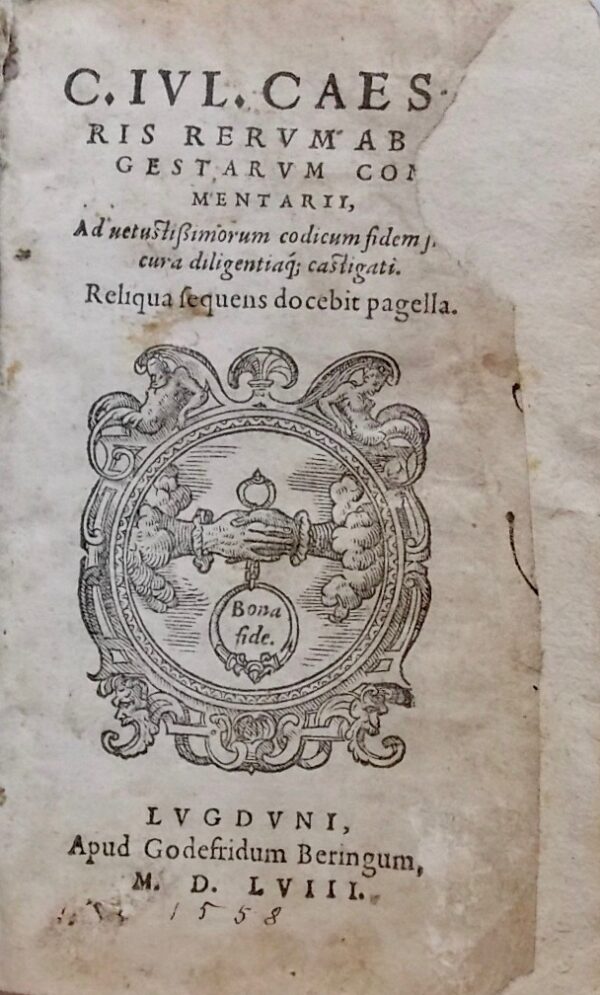 C. IVL. CAES
RIS RERVM AB
GESTARVM CO
MENTARII,
Ad uetustißimorum codicum fidem
cura diligentiaq́; castigati.
Reliqua sequens docebit pagella.
Bona
fide.
LVGDVNI,
Apud Godefridum Beringum,
M. D. LVIII.
1558